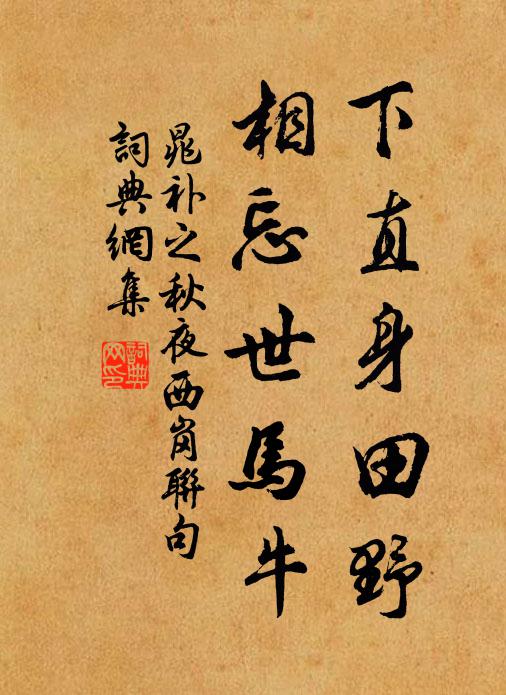 下直身田野
相忘世馬牛
晁补之秋夜西岗聯句
詞典網集
詞典网印